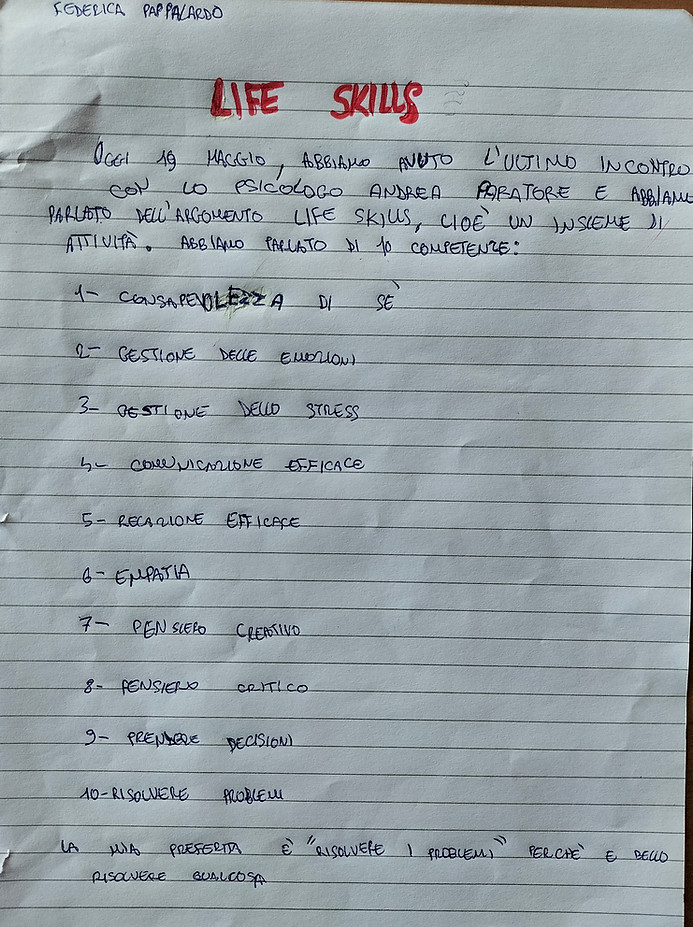 FEDERICA PAPPALARDO
LIFE SKILLS
OGGI 19 MAGGIO, ABBIAMO AVUTO L'ULTIMO INCONTRO
CON LO PSICOLOGO ANDREA PORATORE E ABBIAMO
PARLATO DELL'ARGOMENTO LIFE SKILLS, CIOÈ UN INSIEME DI
ATTIVITÀ. ABBIAMO PARLATO DI 10 COMPETENZE:
1- CONSAPEVOLEZZA DI SÈ
2- GESTIONE DELLE EMOZIONI
3- GESTIONE DELLO STRESS
4- COMUNICAZIONE EFFICACE
5- RELAZIONE EFFICACE
6- EMPATIA
7- PENSIERO CREATIVO
8- PENSIERO CRITICO
9- PRENDERE DECISIONI
10-RISOLVERE PROBLEMI
LA MIA PREFERITA È "RISOLVERE I PROBLEMI" PERCHÈ E BELLO
RISOLVERE QUALCOSA